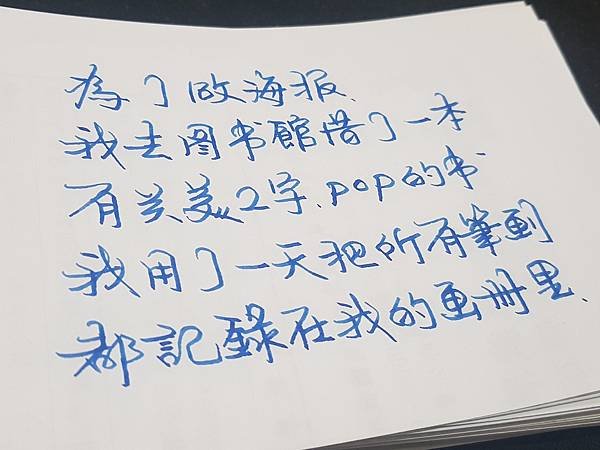 為了做海报、
我去图书館借了一本
有关美工字、pop的书
我用了一天把所有筆画
都記錄在我的画冊里、